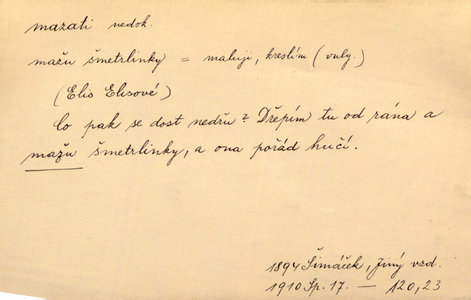 mazati nedok.
mažu šmetrlinky = maluji, kreslím (vulg.)
(Elis Elisové)
Co pak se dost nedřu? Dřepím tu od rána a
mažu šmetrlinky, a ona pořád hučí.
1894 Šimáček, Jiný vzd.
1910 Sp. 17. — 120,23